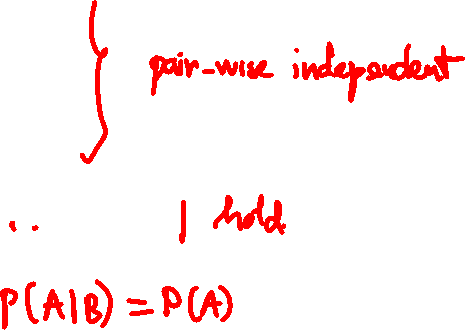 pair-wise independent
.. | hold
P(A|B) = P(A)